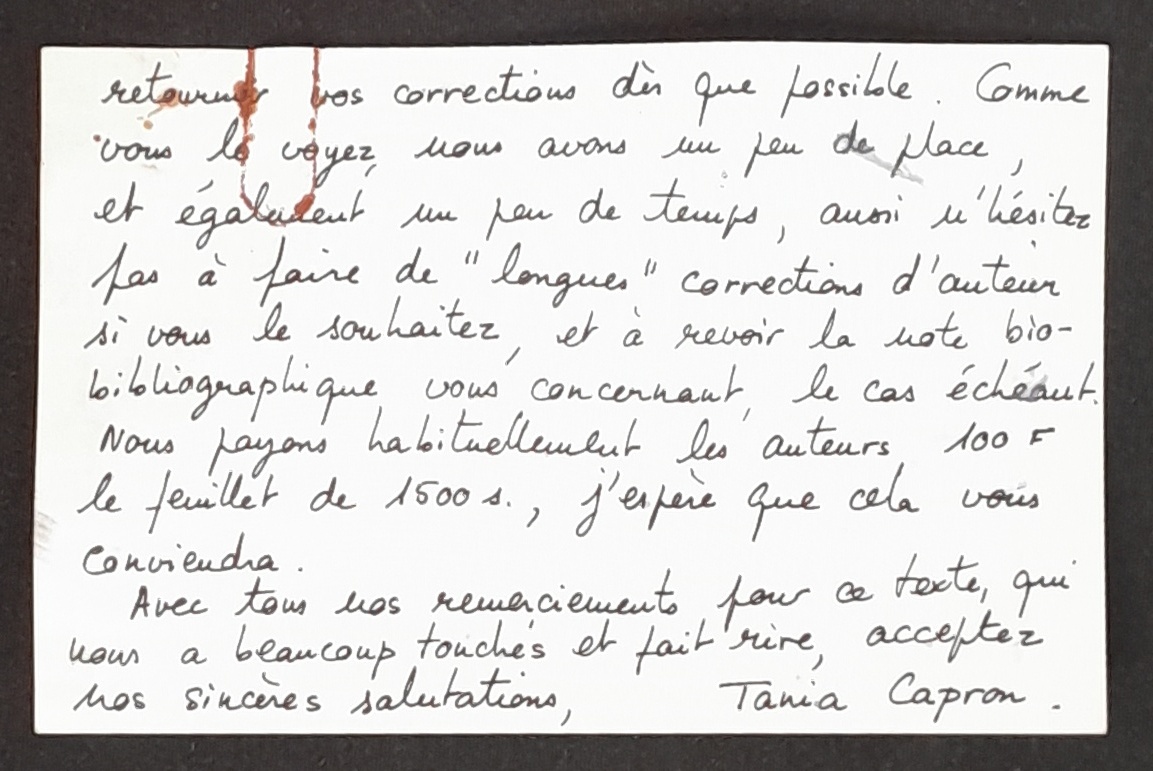 retourner vos corrections dès que possible. Comme
vous le voyez, nous avons un peu de place,
et également un peu de temps, aussi n'hésitez
pas à faire de "longues" corrections d'auteur
si vous le souhaitez, et à revoir la note bio-
bibliographique vous concernant, le cas échéant.
Nous payons habituellement les auteurs 100 F
le feuillet de 1500 s., j'espère que cela vous
conviendra.
Avec tous nos remerciements pour ce texte, qui
nous a beaucoup touchés et fait rire, acceptez
nos sincères salutations, Tania Capron.